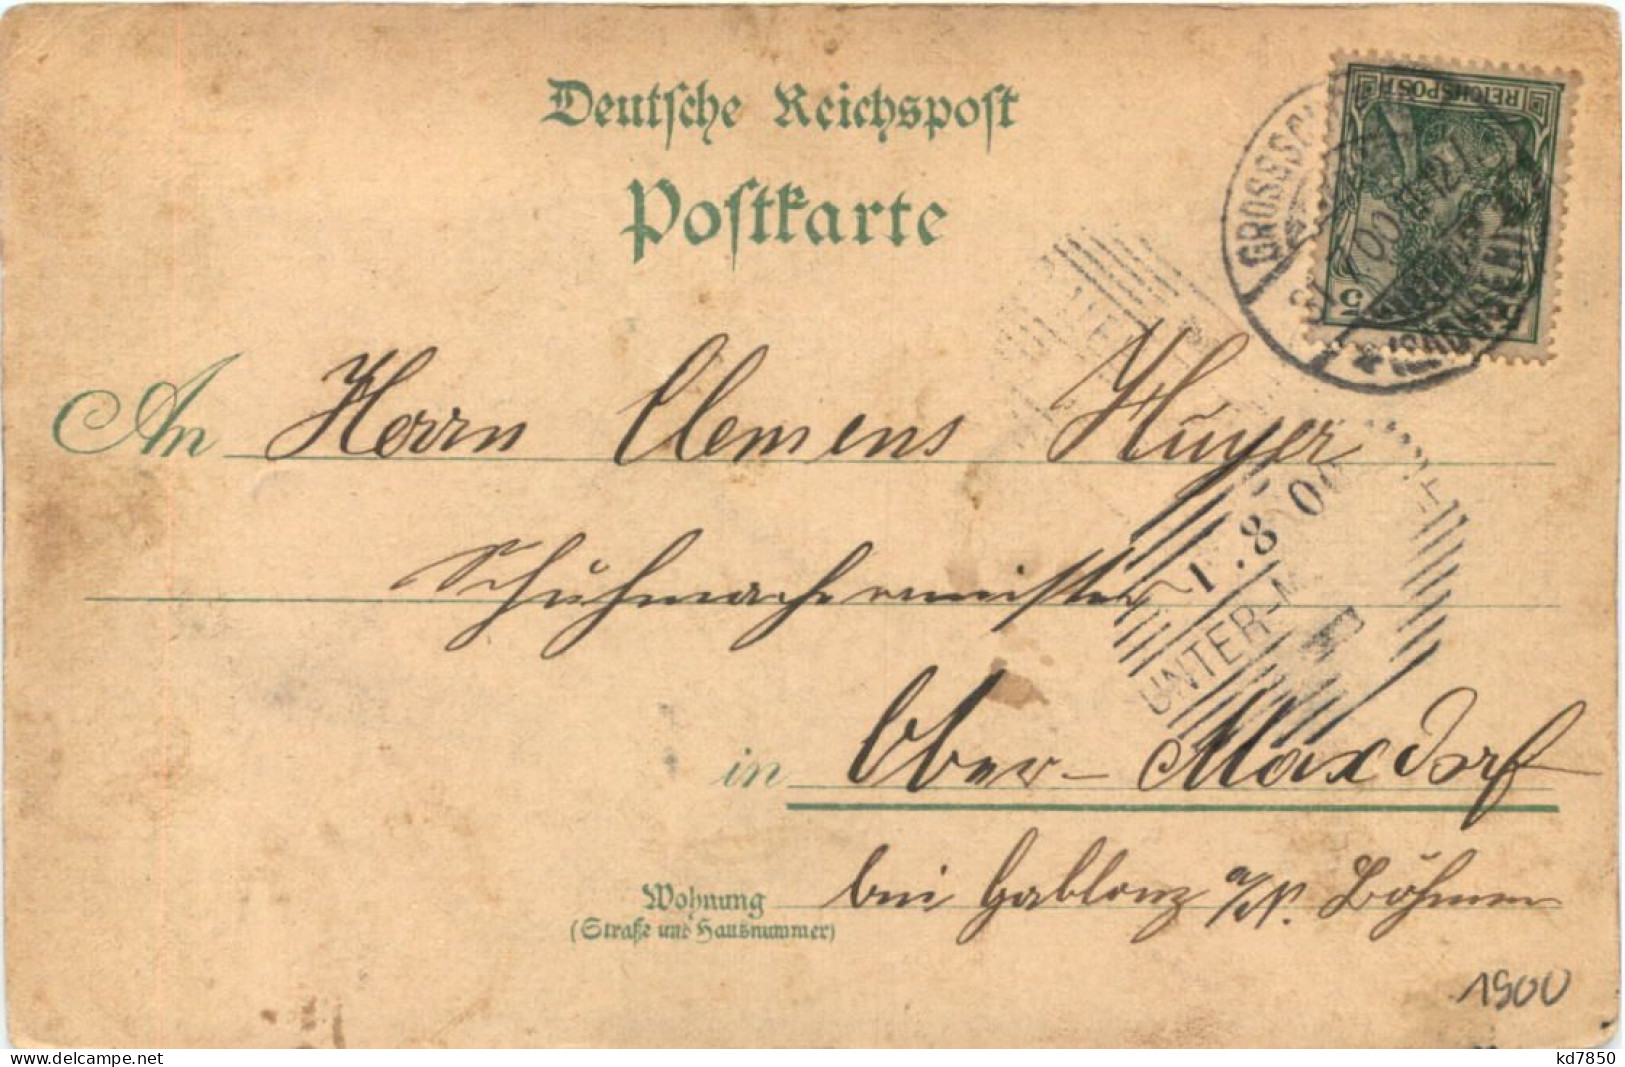 Deutsche Reichspost
Postkarte
REICHSPOST
5
GROSSSCH
An Herrn Clemens Huyer
Schuhmachermeister
1.8 00
UNTER-M
in Ober-Maxdorf
Wohnung
(Straße und Hausnummer)
bei Gablonz a/N. Böhmen
1900
delcampe.net
kd7850